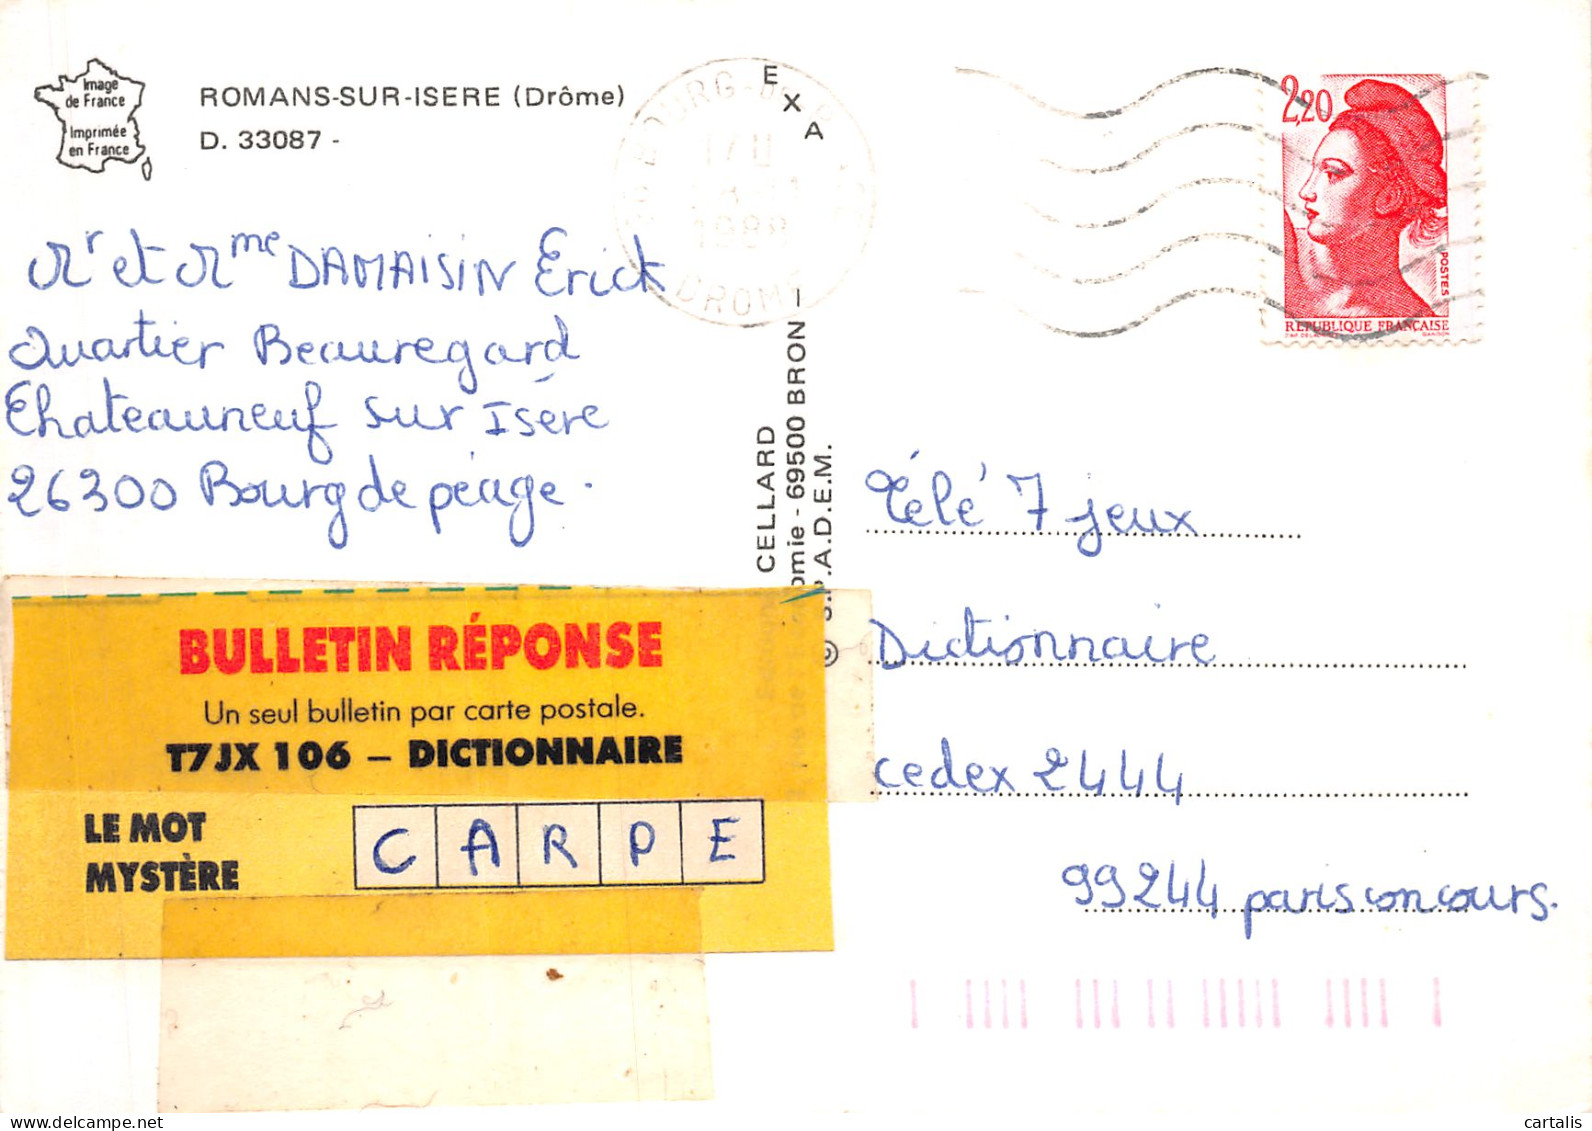 Image
de France
Imprimée
en France
ROMANS-SUR-ISERE (Drôme)
D. 33087 -
Mr et Mme DAMAISIN Erick
Quartier Beauregard
Chateauneuf sur Isère
26300 Bourg de péage.
BOURG DE
1988
DROME
E
X
A
CELLARD
69500 BRON -
S.P.A.D.E.M.
2,20
POSTES
REPUBLIQUE FRANÇAISE
Télé 7 jeux
Dictionnaire
cedex 2444
99244 paris concours.
BULLETIN RÉPONSE
Un seul bulletin par carte postale.
T7JX 106 – DICTIONNAIRE
LE MOT
MYSTÈRE
C A R P E
delcampe.net
cartalis